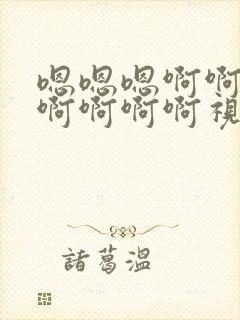 嗯嗯嗯啊啊
啊啊啊啊視
諸葛溫